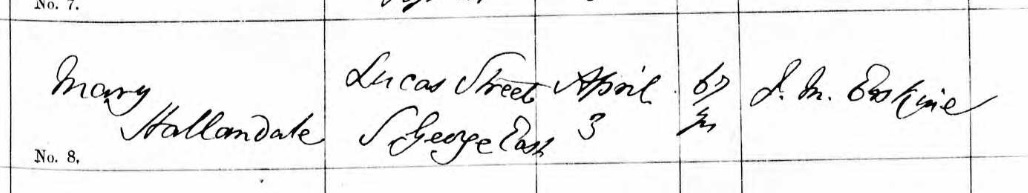 No. 7.
Mary Lucas Street April 67 J. M. Erskine
Hallandale S George East 3 yrs
No. 8.